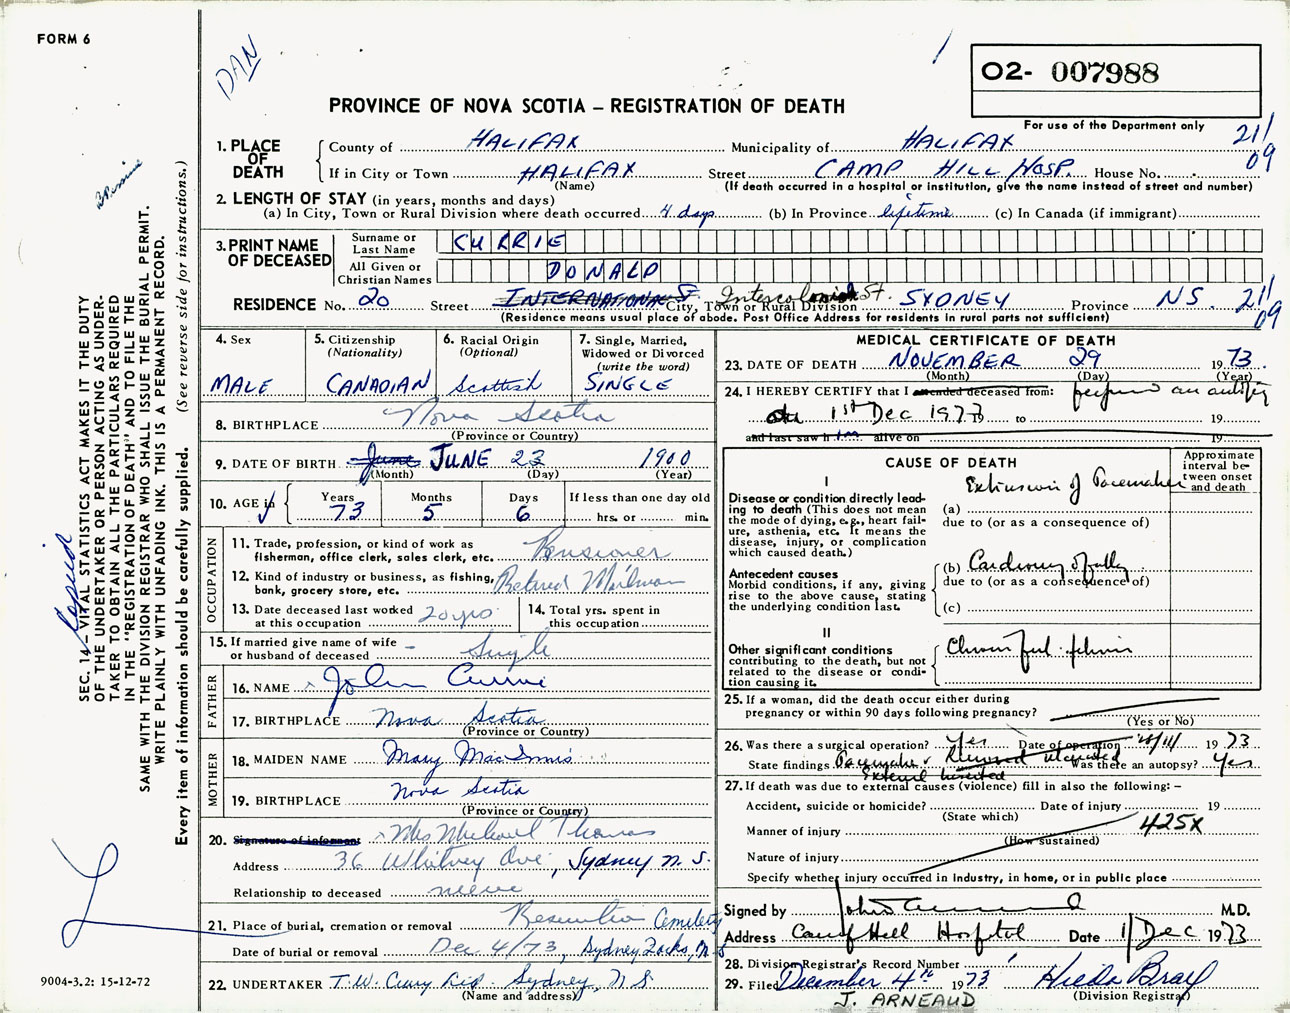 FORM 6
DAN
O2- 007988
PROVINCE OF NOVA SCOTIA – REGISTRATION OF DEATH
For use of the Department only
211
09
1. PLACE OF DEATH
County of HALIFAX Municipality of HALIFAX
If in City or Town HALIFAX Street CAMP HILL HOSP. House No.
(Name) (If death occurred in a hospital or institution, give the name instead of street and number)
2. LENGTH OF STAY (in years, months and days)
(a) In City, Town or Rural Division where death occurred 4 days (b) In Province lifetime (c) In Canada (if immigrant)
3. PRINT NAME OF DECEASED
Surname or Last Name CURRIE
All Given or Christian Names DONALD
RESIDENCE No. 20 Street INTERNATIONAL ST. Intercolonial St. City, Town or Rural Division SYDNEY Province NS. 211
09
(Residence means usual place of abode. Post Office Address for residents in rural parts not sufficient)
4. Sex MALE
5. Citizenship (Nationality) CANADIAN
6. Racial Origin (Optional) Scottish
7. Single, Married, Widowed or Divorced (write the word) SINGLE
8. BIRTHPLACE Nova Scotia
(Province or Country)
9. DATE OF BIRTH June JUNE 23 1900
(Month) (Day) (Year)
10. AGE in Years 73 Months 5 Days 6 If less than one day old hrs. or min.
OCCUPATION
11. Trade, profession, or kind of work as fisherman, office clerk, sales clerk, etc. Pensioner
12. Kind of industry or business, as fishing, bank, grocery store, etc. Retired Mailman
13. Date deceased last worked at this occupation 20 yrs
14. Total yrs. spent in this occupation
15. If married give name of wife or husband of deceased – Single
FATHER
16. NAME John Currie
17. BIRTHPLACE Nova Scotia
(Province or Country)
MOTHER
18. MAIDEN NAME Mary MacInnis
19. BIRTHPLACE Nova Scotia
(Province or Country)
20. Signature of informant Mrs Michael Thomas
Address 36 Whitney Ave, Sydney N.S.
Relationship to deceased niece
21. Place of burial, cremation or removal Resurrection Cemetery
Date of burial or removal Dec 4/73, Sydney Forks, N.S
22. UNDERTAKER T.W. Curry Sydney, N.S
(Name and address)
MEDICAL CERTIFICATE OF DEATH
23. DATE OF DEATH NOVEMBER 29 1973
(Month) (Day) (Year)
24. I HEREBY CERTIFY that I attended deceased from: perform an autopsy
on 1st Dec 1973 to 19
and last saw him alive on 19
CAUSE OF DEATH
Approximate interval between onset and death
I
Disease or condition directly leading to death (This does not mean the mode of dying, e.g., heart failure, asthenia, etc. It means the disease, injury, or complication which caused death.)
(a) Extrusion of Pacemaker
due to (or as a consequence of)
Antecedent causes
Morbid conditions, if any, giving rise to the above cause, stating the underlying condition last.
(b) Cardiomyopathy
due to (or as a consequence of)
(c)
II
Other significant conditions contributing to the death, but not related to the disease or condition causing it.
25. If a woman, did the death occur either during pregnancy or within 90 days following pregnancy?
(Yes or No)
26. Was there a surgical operation? Yes Date of operation 1973
State findings Pacemaker Was there an autopsy? Yes
External inserted
27. If death was due to external causes (violence) fill in also the following: –
Accident, suicide or homicide? Date of injury 19
(State which)
Manner of injury 425X
(How sustained)
Nature of injury
Specify whether injury occurred in industry, in home, or in public place
Signed by M.D.
Address Camp Hill Hospital Date 1 Dec 1973
28. Division Registrar's Record Number
29. Filed December 4th 1973 Hilda Bray
(Division Registrar)
J. ARNEAUD
SEC. 14 – VITAL STATISTICS ACT MAKES IT THE DUTY
OF THE UNDERTAKER OR PERSON ACTING AS UNDERTAKER TO OBTAIN ALL THE PARTICULARS REQUIRED
IN THE "REGISTRATION OF DEATH" AND TO FILE THE
SAME WITH THE DIVISION REGISTRAR WHO SHALL ISSUE THE BURIAL PERMIT.
WRITE PLAINLY WITH UNFADING INK. THIS IS A PERMANENT RECORD.
Every item of information should be carefully supplied. (See reverse side for instructions.)
9004-3.2: 15-12-72